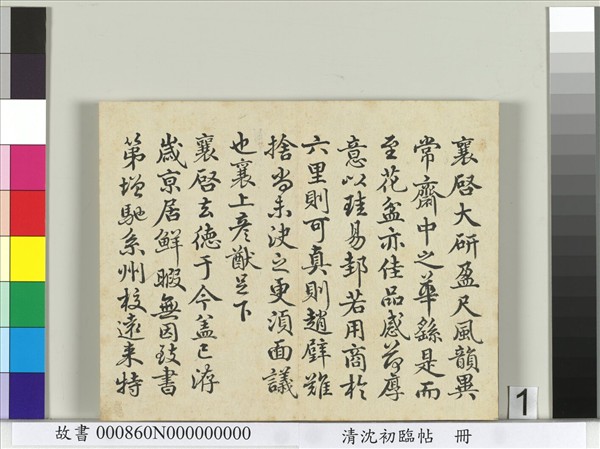 襄啓大研盈尺風韻異
常齋中之華繇是而
至花盆亦佳品感荷厚
意以珪易邽若用商於
六里則可真則趙璧難
捨尚未決之更須面議
也襄上彥猷足下
襄啓去德于今蓋已洊
歲京居鮮暇無因致書
第增馳系州校遠来特
1
故書 000860N000000000
清沈初臨帖 冊